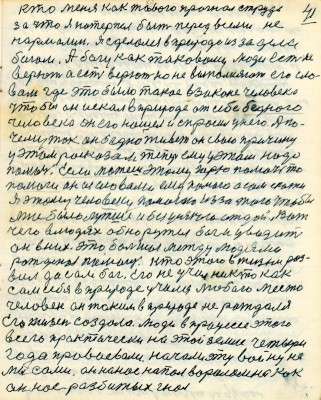 41
кто меня как такового прогнал с труда
за что я потерпел быть перед всеми не
нормалин. Я сделался в природе из за дела
богом. А богу как таковому люди есть не
верют а есть верют но не выполняют его сло-
вам где это было такое в законе человека
чтобы он искал в природе от себе бедного
человека он его нашел и спросил у него. А по-
чему ж он бедно живет он свою причину
у этом расказал теперь ему у этом надо
помочь. Если может этому горю помочь то
помоги он и словами ему помог а сам
Я этому человеку помогаю из за того чтобы
мне было лучше и без всякого отдой. А вот
чего в людях обнаружил бог и увидит
он в них. Это большая между людьми
рожденая помощь. Кто этого в жизни раз-
вил да сам бог. Его не учил никто как
сам себя в природе учил и любого место
человек он таким в природе не рождался
его жизня создала. Люди в процессе этого
всего практически на этой земле четыри
года провоевали, начали эту войну не
мы сами, он нас напал ворвался но как
он нас разбитых гнал